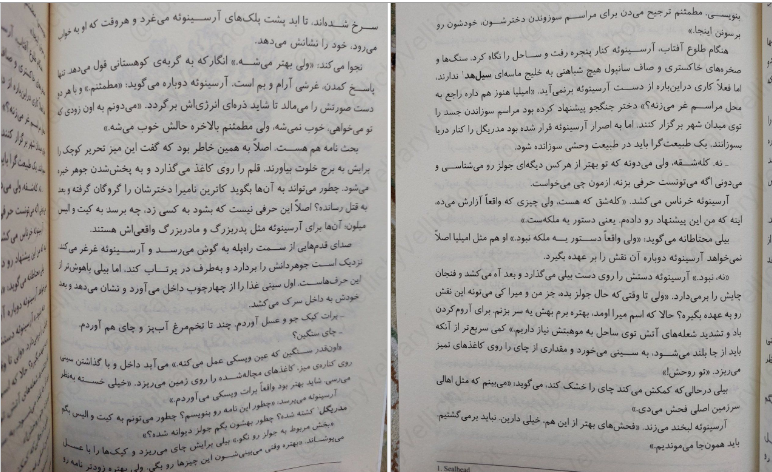 سرخ شده‌اند، تا ابد پشت پلک‌های آرسینوئه می‌غرد و هروقت که او به خواب
می‌رود، خود را نشانش می‌دهد.
نجوا می‌کند: «ولی بهتر می‌شه.» انگار که به گربه‌ی کوهستانی قول می‌دهد. تنها
پاسخ کمدن، غرشی آرام و بم است. آرسینوئه دوباره می‌گوید: «مطمئنم» و با هر دو
دست صورتش را می‌مالد تا شاید ذره‌ای انرژی‌اش برگردد. «می‌دونم به اون زودی که
تو می‌خواهی، خوب نمی‌شه. ولی مطمئنم بالاخره حالش خوب می‌شه.»
بحث نامه هم هست. اصلاً به همین خاطر بود که گفت این میز تحریر کوچک را
برایش به برج خلوت بیاورند. قلم را روی کاغذ می‌گذارد و به پخش‌شدن جوهر خیره
می‌شود. چطور می‌تواند به آن‌ها بگوید کاترین نامیرا دخترشان را گروگان گرفته و بعد
به قتل رسانده؟ اصلاً این حرفی نیست که بشود به کسی زد، چه برسد به کیت و الیس
میلون؛ آن‌ها برای آرسینوئه مثل پدربزرگ و مادربزرگ واقعی‌اش هستند.
صدای قدم‌هایی از سمت راه‌پله به گوش می‌رسد و آرسینوئه غرغر می‌کند.
نزدیک است جوهردانش را بردارد و به‌طرف در پرتاب کند، اما بیلی باهوش‌تر از
این حرف‌هاست. اول سینی غذا را از چهارچوب داخل می‌آورد و نشان می‌دهد و بعد
خودش به داخل سرک می‌کشد.
ـ برات کیک جو و عسل آوردم. چند تا تخم‌مرغ آب‌پز و چای هم آوردم.
ـ چای سنگین؟
«اون‌قدر سنگین که عین ویسکی عمل می‌کنه.» می‌آید داخل و با گذاشتن سینی
روی کناره‌ی میز، کاغذهای مچاله‌شده را روی زمین می‌ریزد. «خیلی خسته به‌نظر
می‌رسی. شاید بهتر بود واقعاً برات ویسکی می‌آوردم.»
آرسینوئه می‌پرسد: «چطور این نامه رو بنویسم؟ چطور می‌تونم به کیت و الیس بگم
مدریگل کشته شده؟ چطور بهشون بگم جولز دیوانه شده؟»
«بخش مربوط به جولز رو نگو.» بیلی برایش چای می‌ریزد و کیک‌ها را با عسل
می‌پوشاند. «بهتره وقتی می‌بینی‌شون این چیزها رو بگی. ولی بهتره زودتر نامه رو
بنویسی. مطمئنم ترجیح می‌دن برای مراسم سوزوندن دخترشون، خودشون رو
برسونن اینجا.»
هنگام طلوع آفتاب، آرسینوئه کنار پنجره رفت و ساحل را نگاه کرد. سنگ‌ها و
صخره‌های خاکستری و صاف سانپول هیچ شباهتی به خلیج ماسه‌ای سیل‌هد¹ ندارند.
اما فعلاً کاری دراین‌باره از دست آرسینوئه برنمی‌آید. «امیلیا هنوز هم داره راجع به
محل مراسم غر می‌زنه؟» دختر جنگجو پیشنهاد کرده بود مراسم سوزاندن جسد را
توی میدان شهر برگزار کنند. اما به اصرار آرسینوئه قرار شده بود مدریگل را کنار دریا
بسوزانند. یک طبیعت‌گرا باید در طبیعت وحشی سوزانده شود.
ـ نه. کله‌شقه، ولی می‌دونه که تو بهتر از هر کس دیگه‌ای جولز رو می‌شناسی و
می‌دونی اگه می‌تونست حرفی بزنه، ازمون چی می‌خواست.
آرسینوئه خرناس می‌کشد. «کله‌شق که هست، ولی چیزی که واقعاً آزارش می‌ده،
اینه که من این پیشنهاد رو داده‌م. یعنی دستور یه ملکه‌ست.»
بیلی محتاطانه می‌گوید: «ولی واقعاً دستور یه ملکه نبود.» او هم مثل امیلیا اصلاً
نمی‌خواهد آرسینوئه دوباره آن نقش را بر عهده بگیرد.
«نه، نبود.» آرسینوئه دستش را روی دست بیلی می‌گذارد و بعد آه می‌کشد و فنجان
چایش را برمی‌دارد. «ولی تا وقتی که حال جولز بده، جز من و میرا کی می‌تونه این نقش
رو به عهده بگیره؟ حالا که اسم میرا اومد، بهتره برم بهش یه سر بزنم. برای آروم‌کردن
باد و تشدید شعله‌های آتش توی ساحل به موهبتش نیاز داریم.» کمی سریع‌تر از آنکه
باید از جا بلند می‌شود. به سینی می‌خورد و مقداری از چای را روی کاغذهای تمیز
می‌ریزد. «تو روحش!»
بیلی درحالی‌که کمکش می‌کند چای را خشک کند، می‌گوید: «می‌بینم که مثل اهالی
سرزمین اصلی فحش می‌دی.»
آرسینوئه لبخند می‌زند. «فحش‌های بهتر از این هم، خیلی دارین. نباید برمی‌گشتیم.
باید همون‌جا می‌موندیم.»
1. Sealhead